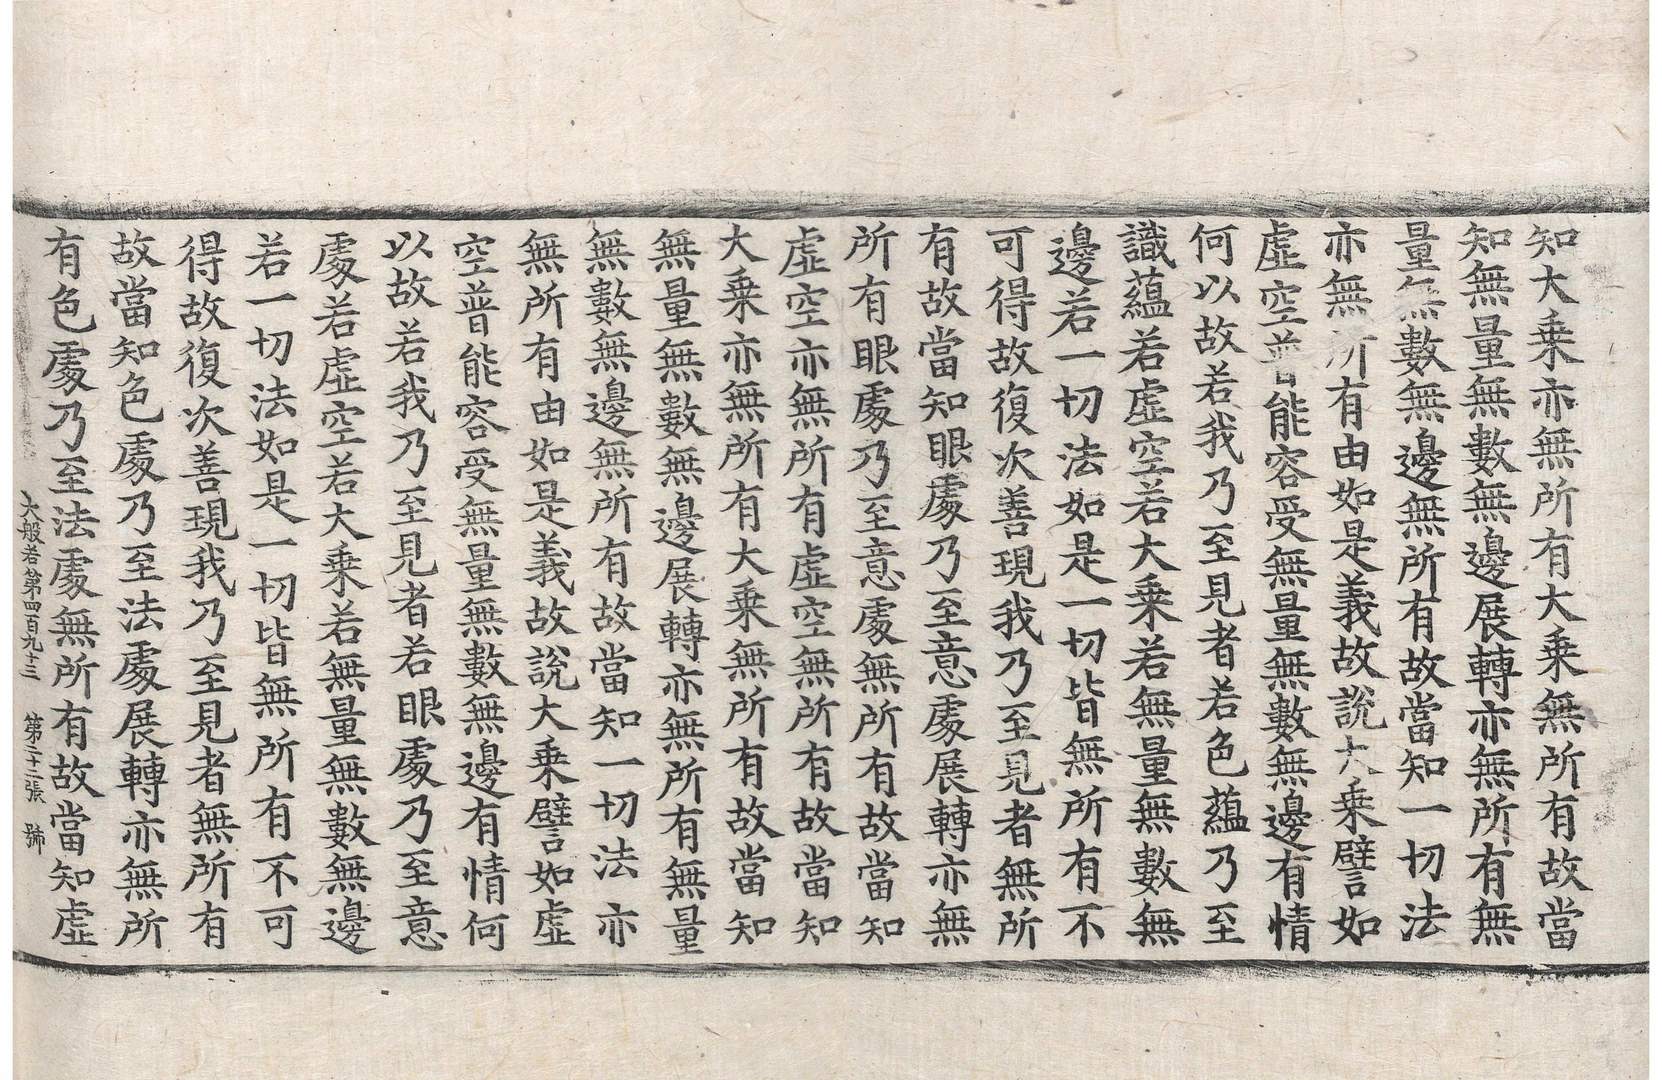 知大乘亦無所有大乘無所有故當
知無量無數無邊展轉亦無所有無
量無數無邊無所有故當知一切法
亦無所有由如是義故說大乘譬如
虛空普能容受無量無數無邊有情
何以故若我乃至見者若色蘊乃至
識蘊若虛空若大乘若無量無數無
邊若一切法如是一切皆無所有不
可得故復次善現我乃至見者無所
有故當知眼處乃至意處展轉亦無
所有眼處乃至意處無所有故當知
虛空亦無所有虛空無所有故當知
大乘亦無所有大乘無所有故當知
無量無數無邊展轉亦無所有無量
無數無邊無所有故當知一切法亦
無所有由如是義故說大乘譬如虛
空普能容受無量無數無邊有情何
以故若我乃至見者若眼處乃至意
處若虛空若大乘若無量無數無邊
若一切法如是一切皆無所有不可
得故復次善現我乃至見者無所有
故當知色處乃至法處展轉亦無所
有色處乃至法處無所有故當知虛
大般若第四百九十三 第二十二張 號